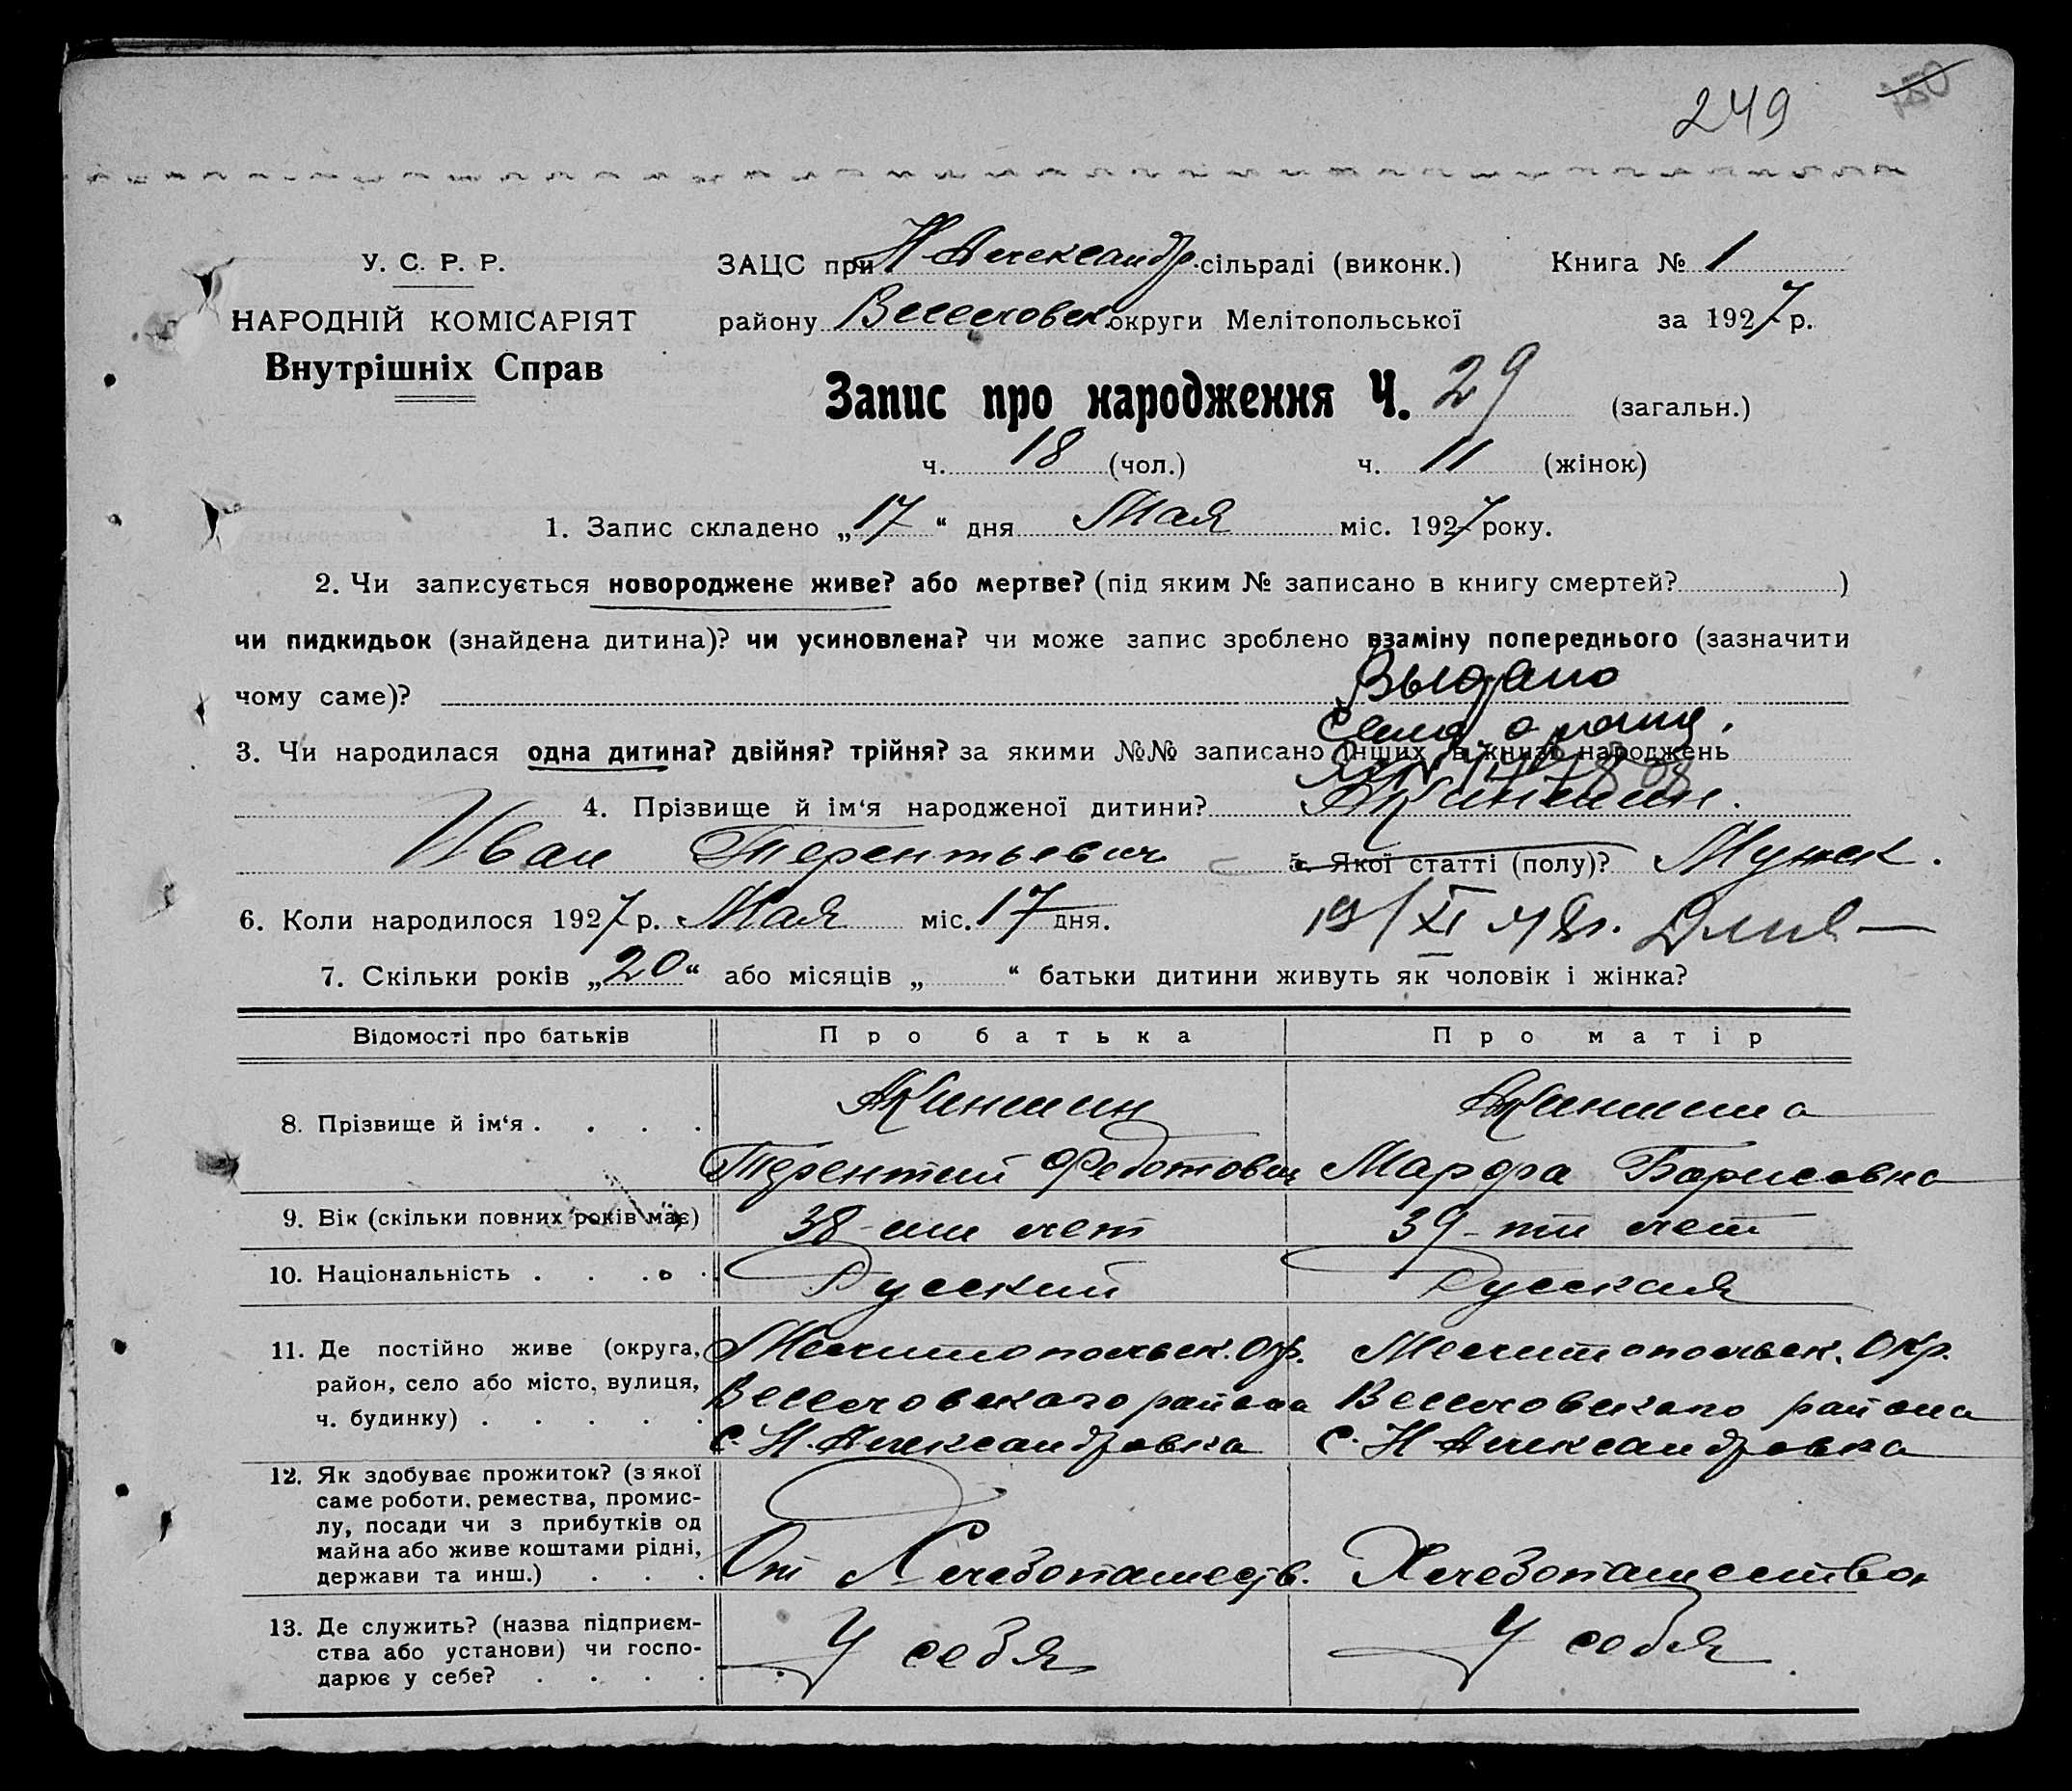 249
У. С. Р. Р.
НАРОДНІЙ КОМІСАРІЯТ
Внутрішніх Справ
ЗАЦС при Н-Александр. сільраді (виконк.) Книга № 1
району Веселовск. округи Мелітопольської за 1927 р.
Запис про народження Ч. 29 (загальн.)
ч. 18 (чол.) ч. 11 (жінок)
1. Запис складено „17“ дня Мая міс. 1927 року.
2. Чи записується новороджене живе? або мертве? (під яким № записано в книгу смертей? )
чи пидкидьок (знайдена дитина)? чи усиновлена? чи може запис зроблено взаміну попереднього (зазначити
чому саме)?
Выдано
3. Чи народилася одна дитина? двійня? трійня? за якими №№ записано інших в книзі народжень
4. Прізвище й ім‘я народженої дитини? Акиншин.
Иван Терентьевич 5. Якої статті (полу)? Мужск.
6. Коли народилося 1927 р. Мая міс. 17 дня.
19/XI 48г.
7. Скільки років „20“ або місяців „ “ батьки дитини живуть як чоловік і жінка?
Відомості про батьків Про батька Про матір
8. Прізвище й ім‘я . . . . Акиншин Акиншина
Терентий Федотович Марфа Борисовна
9. Вік (скільки повних років має) 38-ми лет 39-ти лет
10. Національність . . . . Русский Русская
11. Де постійно живе (округа, район, село або місто, вулиця, ч. будинку) . . . . .
Мелитопольск. Окр. Мелитопольск. Окр.
Веселовского района Веселовского района
с. Н. Александровка с. Н-Александровка
12. Як здобуває прожиток? (з якої
саме роботи, ремества, промис-
лу, посади чи з прибутків од
майна або живе коштами рідні,
держави та инш.) . . . От Хлебопашеств. Хлебопашество
13. Де служить? (назва підприєм-
ства або установи) чи госпо-
дарює у себе? . . . . У себя У себя